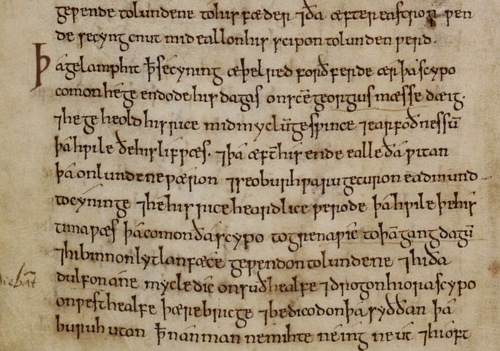 geƿende to lundene to his fæder. ⁊ ða æfter eastron ƿen
de se cyng cnut mid eallon his scipon to lundene ƿerd.
Þa gelamp hit ꝥ se cyning æþelred forðferde ær þa scypo
comon he geendode his dagas on scē georgius mæsse dæig.
⁊ he geheold his rice mid myclū gesƿince ⁊ earfoðnessū
þa hƿile ðe his lif ƿæs. ⁊ þa æft̄ his ende ealle ða ƿitan
þa on lundene ƿæron ⁊ seo buruhƿaru gecuron eadmund
to cyninge ⁊ he his rice heardlice ƿerode þa hƿile þe his
tima ƿæs þa comon ða scypo to grenaƿic to þā gangdagū
⁊ hi binnon lytlan fæce geƿendon to lundene ⁊ hi ða
dulfon ane mycle dic on suðhealfe ⁊ drogon hiora scypo
on ƿesthealfe þære bricge ⁊ bedicodon þa syððan þa
buruh utan ꝥ nan man ne mihte ne ing ne ut ⁊ hi oft